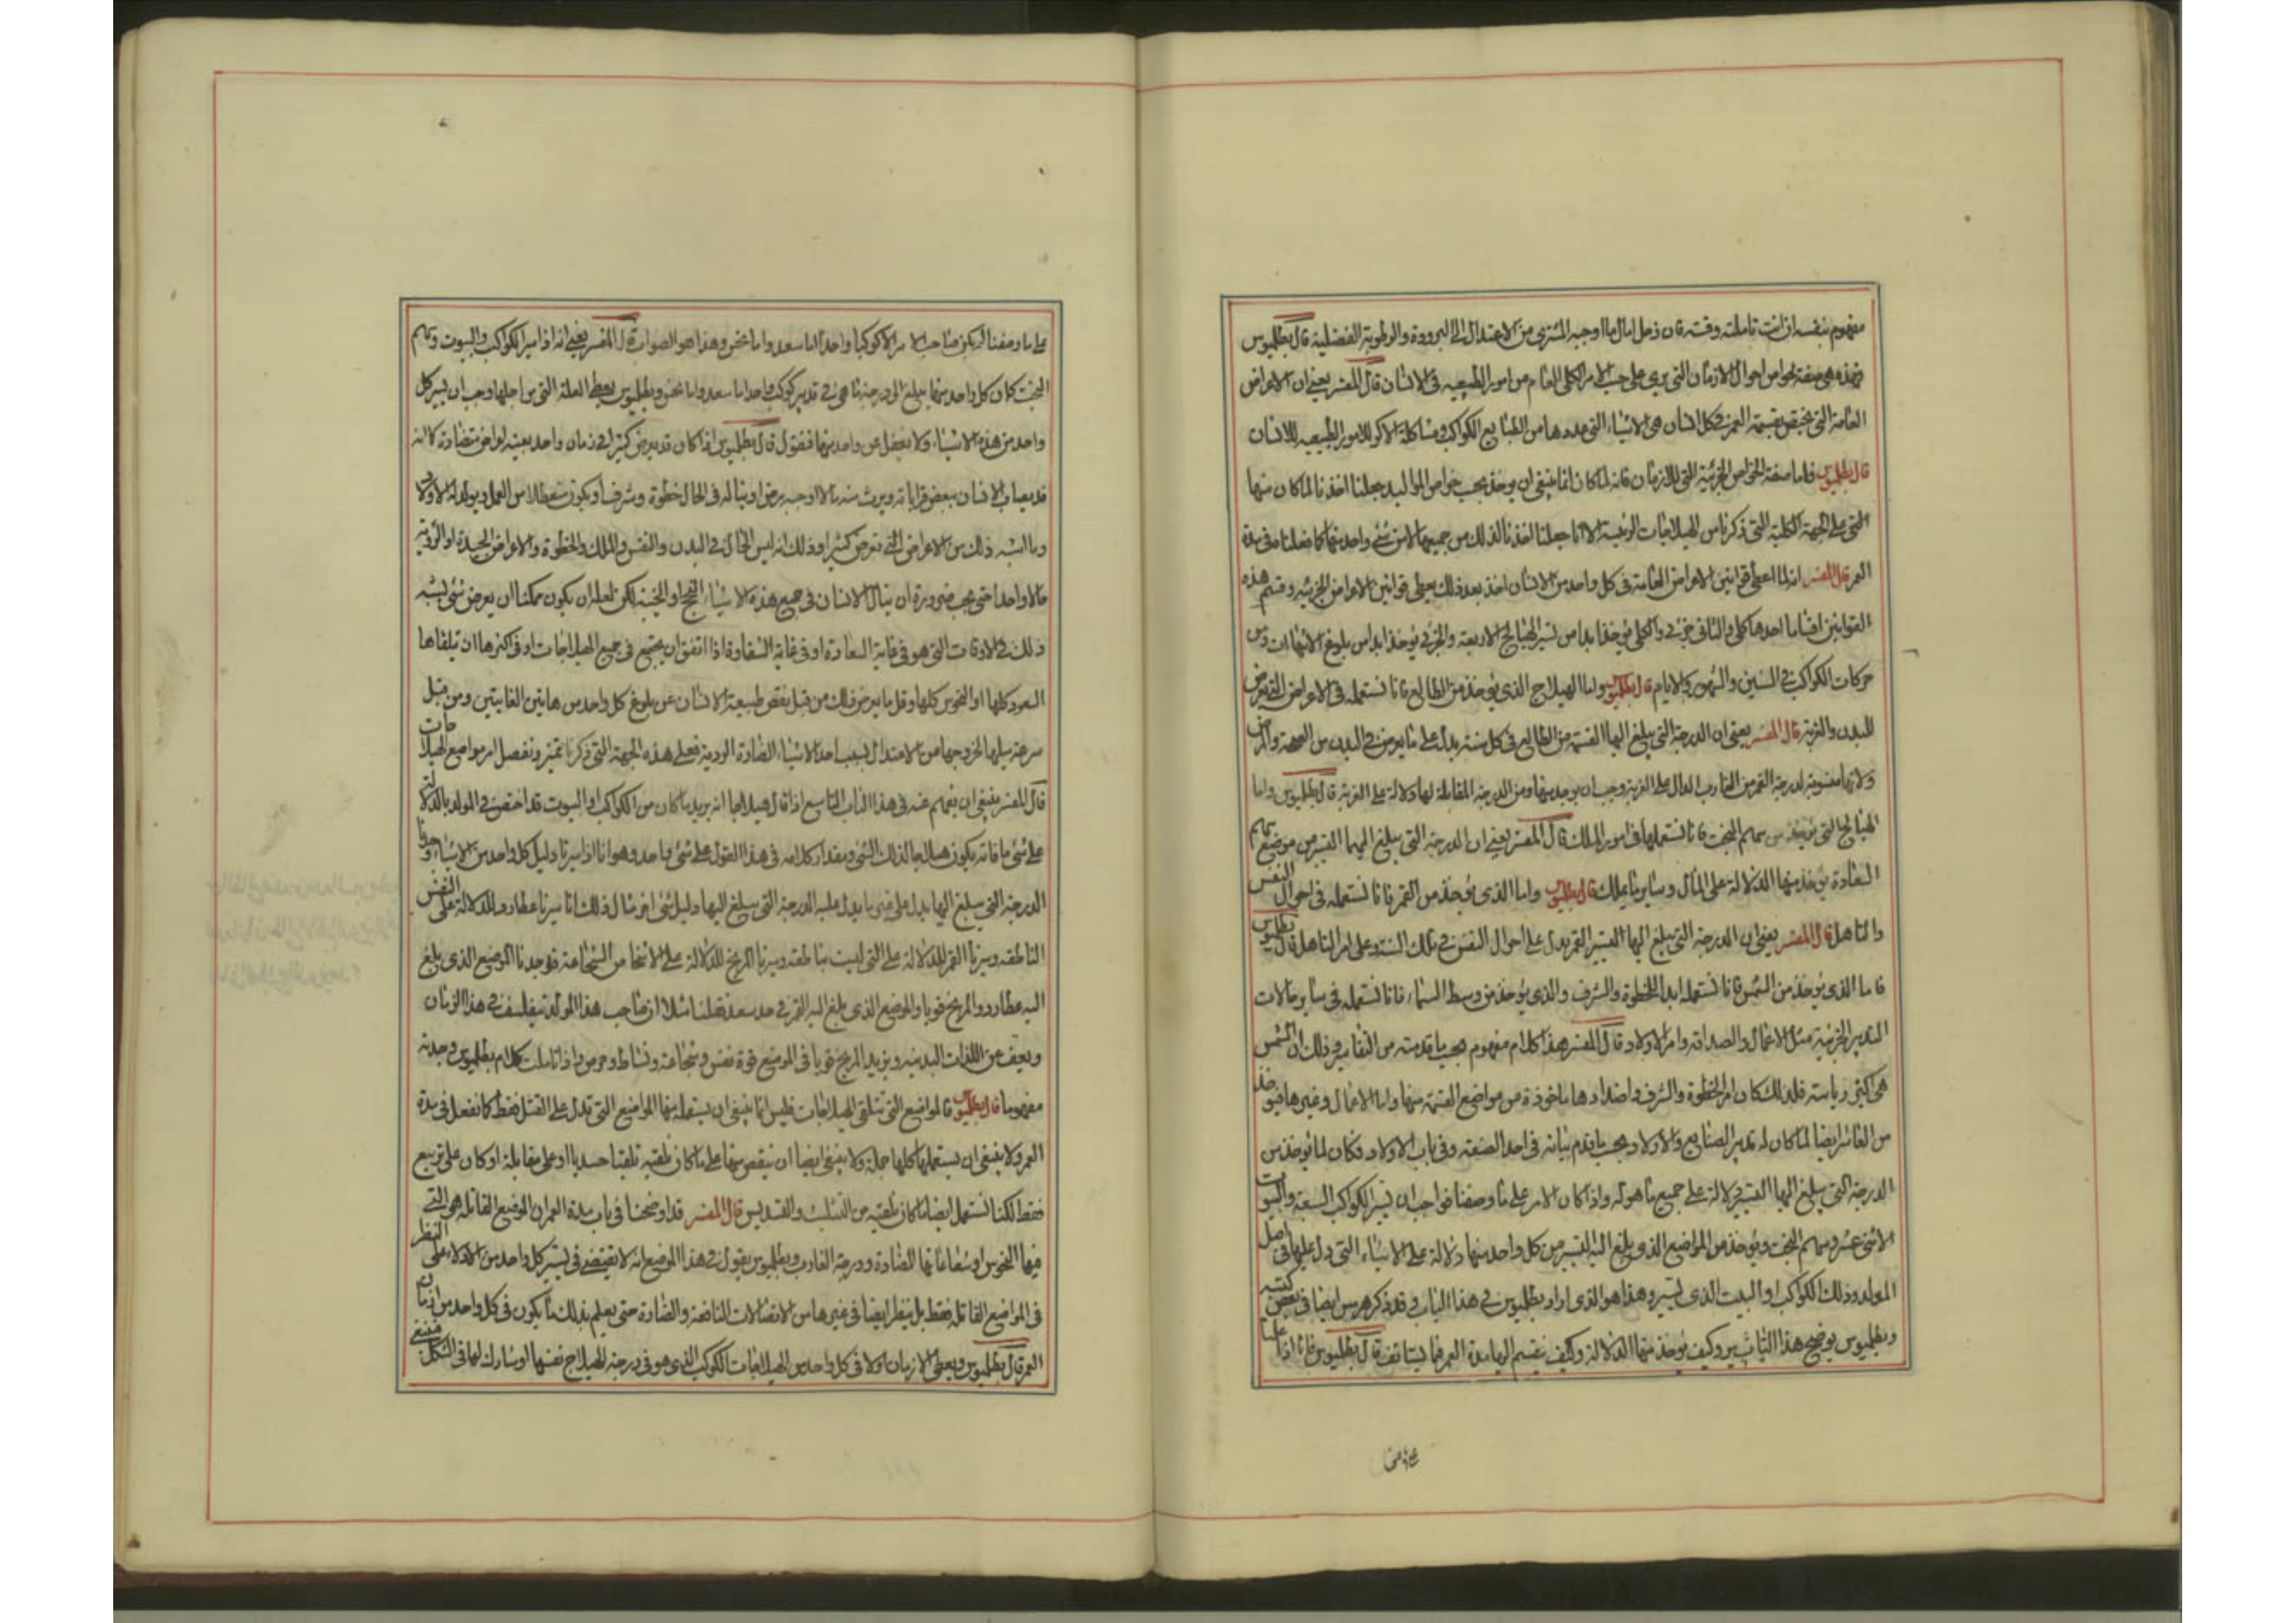 مفهوم بنفسه ان انت تاملته وفته فان زحل امال ما اوجبه المشتري من الاعتدال الى البرودة والرطوبة الفضلية قال بطلميوس
فهذه هي صفة خواص احوال الازمان التي يرى على حسب الامر الكلي العام من امور الطبيعيه في الانسان قال المفسر يعني ان الاعراض
العامة التي تختص بقسمة العمر في كل انسان هي الاشياء التي عددها من الطبايع الكواكب ومشاكلة الاكوار للامور الطبيعيه للانسان
قال بطلميوس فاما صفة الخواص الجزئية التي للازمان فانه لما كان انما ينبغي ان يوخذ بحسب خواص المواليد جعلنا اخذنا لما كان منها
التي على الجهة الكلية التي ذكرنا من الهيلاجات الرئيسية الا انا جعلنا اخذنا لذلك من جميعها لا من شئ واحد منها كما فعلنا في مدة
العمر قال المفسر انه لما اعطى قوانين الاعراض العامة في كل واحد من الانسان اخذ بعد ذلك يعطى قوانين الاعراض الجزئيه وقسم هذه
القوانين اقساما احدها كلي والثاني جزئي والكلي يوخذ ابدا من تسيير الهيالج الاربعة والجزئي يوخذ ابدا من بلوغ الانتهاات ومن
حركات الكواكب في السنين والشهور والايام قال بطلميوس واما الهيلاج الذي يوخذ من الطالع فانا نستعمله في الاعراض التي تعرض
للبدن والغربة قال المفسر يعني ان الدرجة التي يبلغ اليها القسمة من الطالع في كل سنة يدل على ما يعرض في البدن من الصحة والمرض
ولانها منسوبة لدرجة القمر من الغارب الدال على الغربة وجب ان يوجد منها ومن الدرجة المقابلة لها دلالة على الغربة قال بطلميوس واما
الهيالج التي توخذ من سهم البخت فانا نستعملها في امور الملك قال المفسر يعني ان الدرجة التي يبلغ اليها التسيير من موضع سهم
السعادة يوخذ منها الدلالة على المال وساير ما يملك قال بطلميوس واما الذي يوخذ من القمر فانا نستعمله في احوال النفس
والتاهل قال المفسر يعني ان الدرجة التي تبلغ اليها التسيير القمر يدل على احوال النفس في تلك السنة وعلى امر التاهل قال بطلميوس
فاما الذي يوخذ من الشمس فانا نستعمله ابدا للخطوة والشرف والذي يوخذ من وسط السماء فانا نستعمله في ساير حالات
التدبير الجزئية مثل الاعمال والصداقة وامر الاولاد قال المفسر هذا كلام مفهوم بحسب ما قدمته من التفاسير وذلك ان الشمس
هي اكثر رياسة فلذلك كان امر الخطوة والشرف واضدادها ماخوذة من مواضع القسمة منها واما الاعمال وغيرها فيوخذ
من العاشر ايضا لما كان له تدبير الصنايع والاولاد بحسب ما قدم بيانه في احد الصنعة وفي باب الاولاد فكان لما توخذ من
الدرجة التي يبلغ اليها التسيير دلالة على جميع ما هو له واذا كان الامر على ما وصفنا فواجب ان تسير الكواكب السبعة والبيوت
الاثنى عشر وسهم البخت ويوخذ من المواضع الذي بلغ اليه التسيير من كل واحد منها دلالة على الاشياء التي دل عليها في اصل
المولد وذلك الكواكب او البيت الذي تسيره وهذا هو الذي اراد بطلميوس في هذا الباب وقد ذكر هرمس ايضا في بعض كتبه
وبطلميوس يوضح هذا التاثير وكيف يوخذ منها الدلالة وكيف يقسم اليها مدة العمر فيما يستانف قال بطلميوس فانا اذا علمنا
على ما وصفنا لم يكن صاحب الامر الا كوكبا واحدا اما سعد واما نحس وهذا هو الصواب قال المفسر يعني انه اذا سير الكواكب والبيوت وسهم
البخت كان كل واحد منها يبلغ الى درجة ما هي في تدبير كوكب واحد اما سعد واما نحس وبطلميوس يعطي العلة التي من اجلها وجب ان يسير كل
واحد من هذه الاشياء ولا يغفل عن واحد منها فيقول قال بطلميوس اذا كان قد يعرض كثيرا في زمان واحد بعينه اعراض متضادة كانه
قد يصاب الانسان ببعض قراباته ويرث منه مالا اوجبه مرض او يناله في الحال خطوة وشرف او يكون متعطلا من العمل ويولد له الاولاد
وما اشبه ذلك من الاعراض التي تعرض كثيرا وذلك انه ليس الحال في البدن والنفس والملك والخطوة والاعراض الجيدة او الردية
حالا واحدا حتى يجب ضرورة ان ينال الانسان في جميع هذه الاشياء النجح او الخيبة لكن لعله ان يكون ممكنا ان يعرض شئ يشبه
ذلك في الاوقات التي هو في غاية السعادة او في غاية الشقاوة اذا اتفق ان يجتمع في جميع الهيلاجات او في اكثرها ان تلقاها
السعود كلها او النحوس كلها وقل ما يعرض ذلك من قبل نقص طبيعة الانسان عن بلوغ كل واحد من هاتين الغايتين ومن قبل
سرعة ميلها لخروجها من الاعتدال بسبب احد الاشياء الضارة الردية فعلى هذه الجهة التي ذكرنا تميز ونفصل امر مواضع الهيلاجات
قال المفسر ينبغي ان يفهم عنه في هذا الباب التاسع اذا قال هيلاجا انه يريد ما كان من الكواكب او البيوت قد اختص في المولد بالدلالة
على شئ ما فانه يكون هيلاجا لذلك الشئ ومقدار كلامه في هذا القول على شئ واحد وهو انا اذا سيرنا دليل كل واحد من الاشياء وجدنا
الدرجة التي يبلغ اليها يدل على غير ما يدل عليه الدرجة التي يبلغ اليها دليل شئ اخر مثال ذلك انا سيرنا عطارد للدلالة على النفس
الناطقة وسيرنا القمر للدلالة على التي ليست بناطقة وسيرنا المريخ للدلالة على الانتخا من الشجاعة فوجدنا الموضع الذي بلغ
اليه عطارد والمريخ قويا والموضع الذي بلغ اليه القمر في حد سعد فعلمنا مثلا ان صاحب هذا المولد يتفلسف في هذا الزمان
ويعف عن اللذات البدنيه ويزيد المريخ قويا في الموضع قوة نفس وشجاعة ونشاط وحرص واذا تاملت كلام بطلميوس وجدته
مفهوما قال بطلميوس فالمواضع التي تتلقى الهيلاجات فليس انما ينبغي ان يستعمل منها المواضع التي تدل على القتل فقط كما نفعل في مدة
العمر ولا ينبغي ان يستعملها كلها جملة ولا ينبغي ايضا ان يقتصر منها على ما كان تلقيه تلقيا جسديا او على مقابلة او كان على تربيع
فقط لكنا نستعمل ايضا ما كان تلقيه من التثليث والتسديس قال المفسر قد اوضحنا في باب مدة العمر ان الموضع القاتلة هي التي
فيها النحوس او شعاعاتها المضادة ودرجة الغارب وبطلميوس يقول في هذا الموضع انه لا يقتصر في تسيير كل واحد من الادلاء على النظر
في المواضع القاتلة فقط بل ينظر ايضا في غيرها من الاتصالات النافعة والضارة حتى يعلم بذلك ما يكون في كل واحد من ازمان
العمر قال بطلميوس ويعطى الازمان اولا في كل واحد من الهيلاجات الكوكب الذي هو في درجة الهيلاج نفسها او مشارك لها في الشكل فينبغي